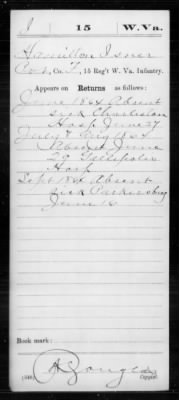 I 15 W. Va.
Hamilton Isner
Co. , 15 Reg't W. Va. Infantry.
Appears on Returns as follows:
June 1864 Absent
sick Charleston
Hosp June 27
July & Aug 1864
Absent June
29 Gallipolis
Hosp
Sept 1864 Absent
sick Parkersburg
June 16
Book mark:
(546) Copyist.